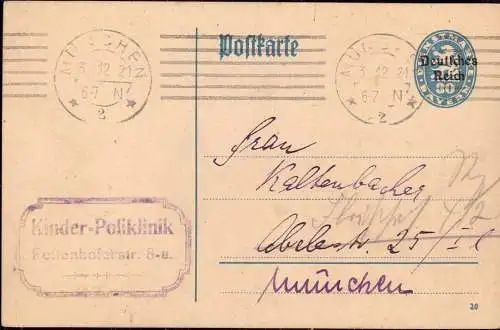 Postkarte
MÜNCHEN
3. 12 21
6-7 N
2
MÜNCHEN
3. 12 21
6-7 N
2
Deutsches
Reich
80
BAYERN
Frau
Kaltenbacher
Abelestr. 25/II
München
Kinder-Poliklinik
Pettenkoferstr. 8-a.
20